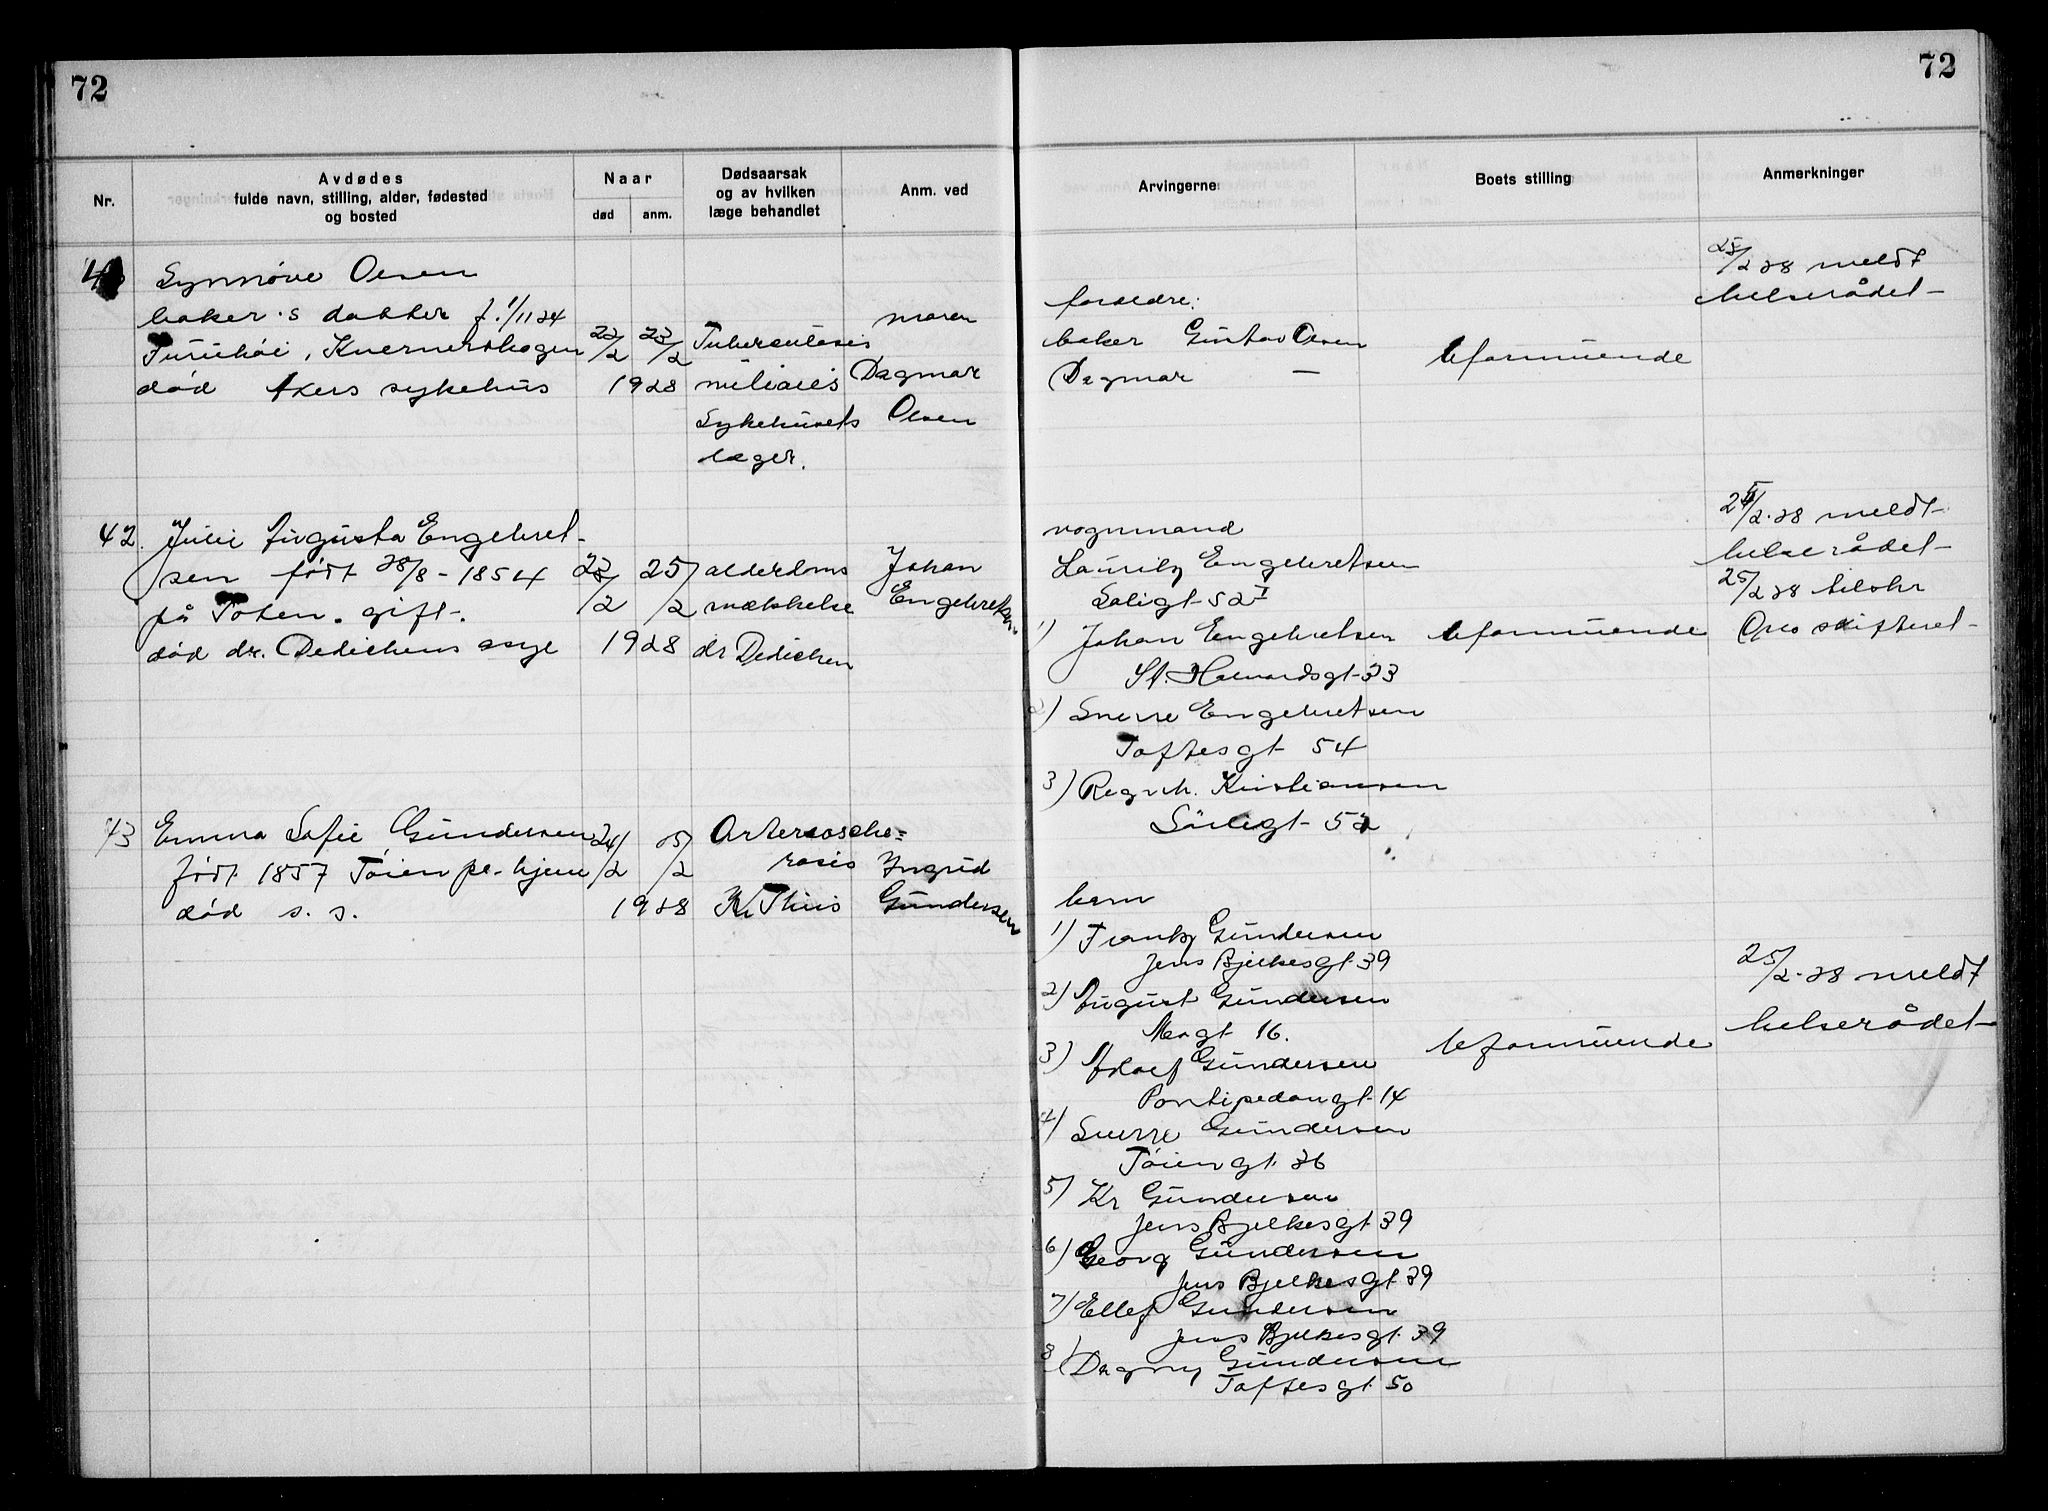 72
72
Nr.
Avdødes
fulde navn, stilling, alder, fødested
og bosted
Naar
død
anm.
Dødsaarsak
og av hvilken
læge behandlet
Anm. ved
Arvingerne
Boets stilling
Anmerkninger
Synnöve Olsen
baker's datter f. 1/11 24
Furuhöi, Kvernerskogen
död Akers sykehus
22/2 23/2
1928
Tuberculosis
miliaris
Sykehusets
læger.
moren
Dagmar
Olsen
foreldre:
baker Gustav Olsen
Dagmar —
Uformuende
25/2 28 meldt
helserådet
42. Julie Augusta Engebret-
sen född 28/8 - 1854
på Toten. gift.
död dr. Dedichens asyl
25/2
1928
alderdoms
svækkelse
dr Dedichen
Johan
Engebretsen
vognmand
Lauritz Engebretsen
52 I
1) Johan Engebretsen
St. Halvardsgt 33
2) Sverre Engebretsen
Toftesgt 54
3) Ragnh. Kristiansen
Sörligt 52
Uformuende
2.28 meldt
helserådet
25/2 28 tilskr
Oslo skifteret
43 Emma Sofie Gundersen
född 1857 Töien pl. hjem
död s. s.
24/2 25/2
1928
Arteriosche=
rosis
Kr Thiis
Ingrid
Gundersen
barn
1) Frantz Gundersen
Jens Bjelkesgt 39
2) August Gundersen
gt 16.
3) Adolf Gundersen
Pontipedangt 14
4) Sverre Gundersen
Töiengt. 26
5) Kr Gundersen
Jens Bjelkesgt 39
6) Georg Gundersen
Jens Bjelkesgt 39
7) Ellef Gundersen
Jens Bjelkesgt. 39
8) Dagny Gundersen
Toftesgt. 50
Uformuende
25/2.28 meldt
helserådet